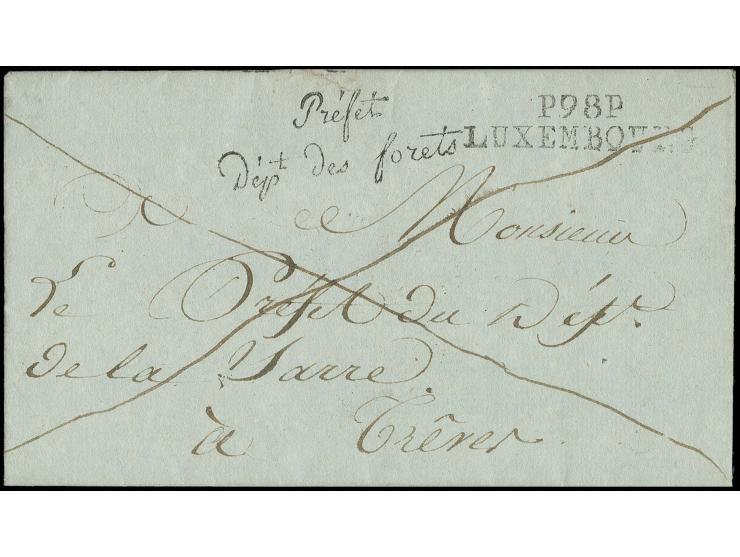 Préfet
Dépt des forets
P98P
LUXEMBOURG
A Monsieur
Le Préfet du Dépt.
de la Sarre
à Trêves